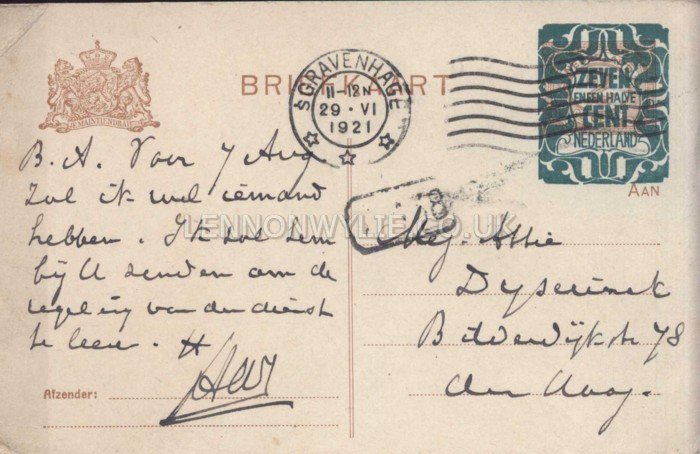 BRIEFKAART
'SGRAVENHAGE
11-12N
29·VI
1921
ZEVEN
EN EEN HALVE
CENT
NEDERLAND
JE MAINTIENDRAI
AAN
B.A. Voor 7 Aug
zal ik wel iemand
hebben. Ik zal hem
bij U zenden om de
regeling van den dienst
te leeren. H
Afzender:
Mej. Attie
Dyserinck
78
Den Haag.
LENNONWYLIE.CO.UK